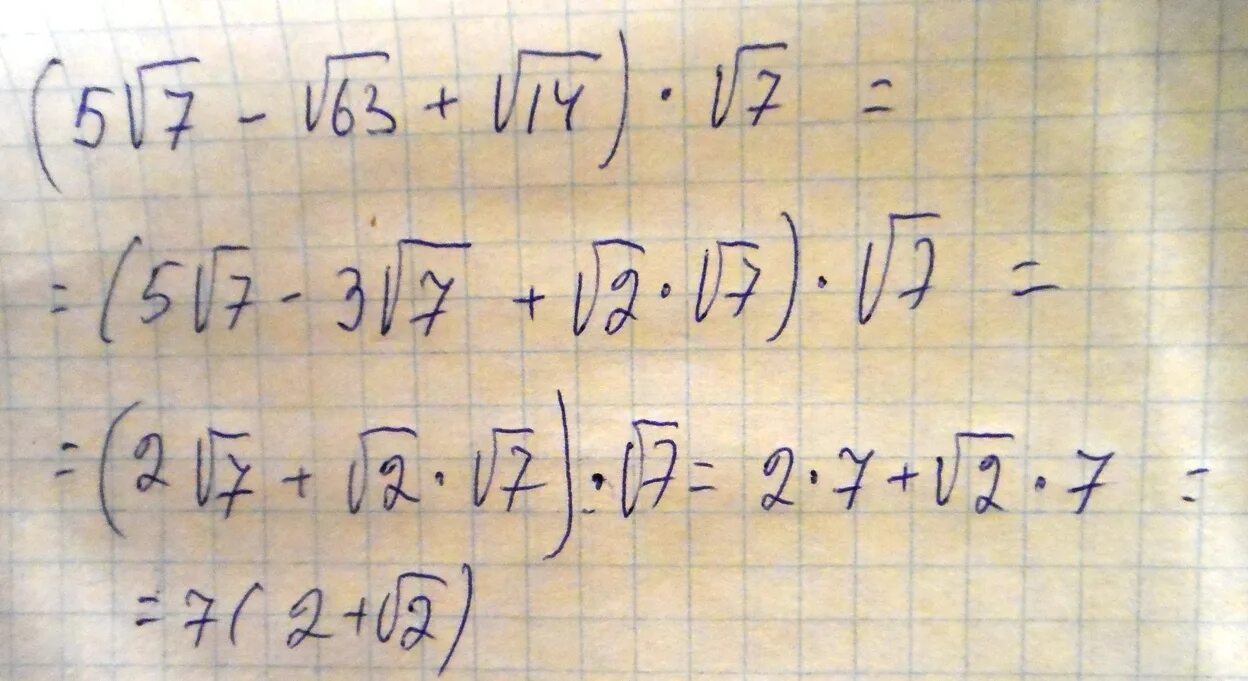 (5√7 - √63 + √14) · √7 =
= (5√7 - 3√7 + √2 · √7) · √7 =
= (2√7 + √2 · √7) · √7 = 2 · 7 + √2 · 7 =
= 7(2 + √2)